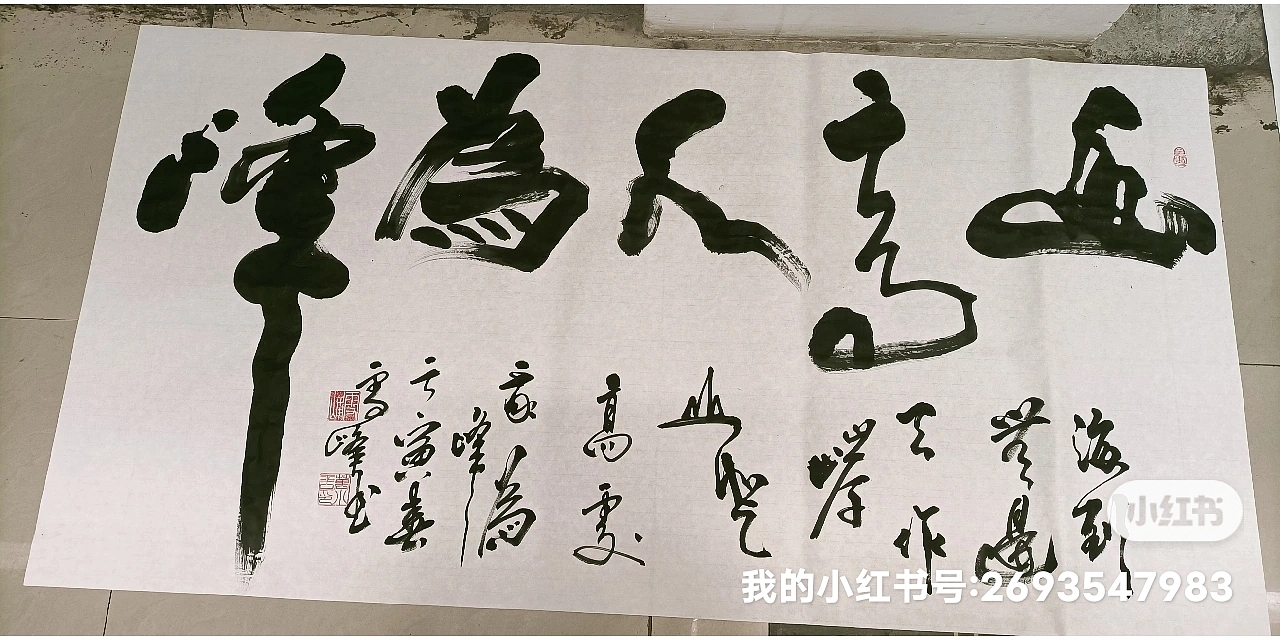 山高人為峰
海到
無邊
天作
岸
山登
高處
我為
峰
壬寅春
雪峰书
小红书
我的小红书号:2693547983